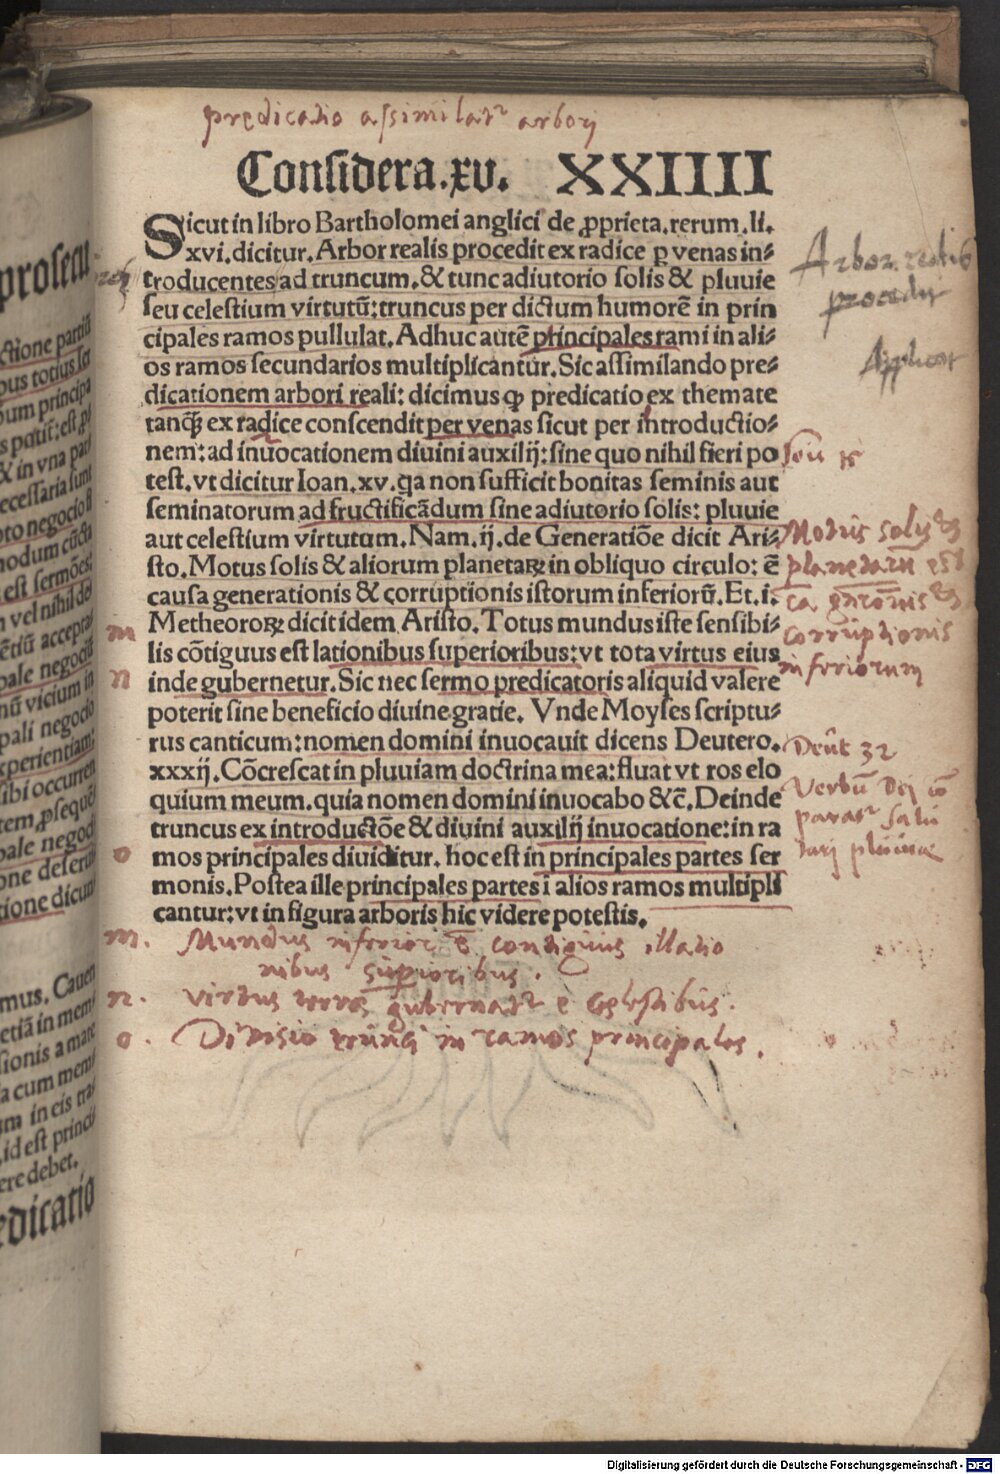 predicatio assimilatr arbori
Considera.xv. XXIIII
Sicut in libro Bartholomei anglici de ꝓprieta.rerum.li.
xvi.dicitur.Arbor realis procedit ex radice ꝑ venas in-
troducentes ad truncum.& tunc adiutorio solis & pluuie
seu celestium virtutũ:truncus per dictum humorẽ in prin
cipales ramos pullulat.Adhuc autẽ principales rami in ali-
os ramos secundarios multiplicantur.Sic assimilando pre-
dicationem arbori reali: dicimus ꝙ predicatio ex themate
tanꝙ̃ ex radice conscendit per venas sicut per introductio-
nem:ad inuocationem diuini auxilij:sine quo nihil fieri po
test.vt dicitur Ioan.xv.qa non sufficit bonitas seminis aut
seminatorum ad fructificãdum sine adiutorio solis: pluuie
aut celestium virtutum.Nam.ij.de Generatiõe dicit Ari-
sto.Motus solis & aliorum planetaꝝ in obliquo circulo: ẽ
causa generationis & corruptionis istorum inferiorũ.Et.i.
Metheoroꝝ dicit idem Aristo.Totus mundus iste sensibi-
lis cõtiguus est lationibus superioribus:vt tota virtus eius
inde gubernetur.Sic nec sermo predicatoris aliquid valere
poterit sine beneficio diuine gratie. Vnde Moyses scriptu-
rus canticum:nomen domini inuocauit dicens Deutero.
xxxij.Cõcrescat in pluuiam doctrina mea:fluat vt ros elo
quium meum.quia nomen domini inuocabo &c̃.Deinde
truncus ex introductiõe & diuini auxilij inuocatione:in ra
mos principales diuiditur. hoc est in principales partes ser
monis.Postea ille principales partes i alios ramos multipli
cantur:vt in figura arboris hic videre potestis.
Arbor realis
procedit
Applicat
Motus solis &
planetarũ est
cã gñrõnis &
corruptionis
inferiorum
Deut 32
Verbũ Dei cõ
paratr salu
tari pluuiae
m
n
o
m. Mundus inferior ẽ contiguus illatio
nibus superioribus.
n. virtus terrae gubernatr e coelestibus.
o. Divisio trunci in ramos principales.
prosecu
ctione partiũ
pus totius ser
est sermões:
vel nihil de
pale negociũ
pali negocio
experientiam:
ibi occurren
pale negoci
tione dicun
mus. Cauen
etiã in mem
sionis a mate
a cum mem
m in eis tra
id est princi
ere debet.
edicatio
Digitalisierung gefördert durch die Deutsche Forschungsgemeinschaft - DFG